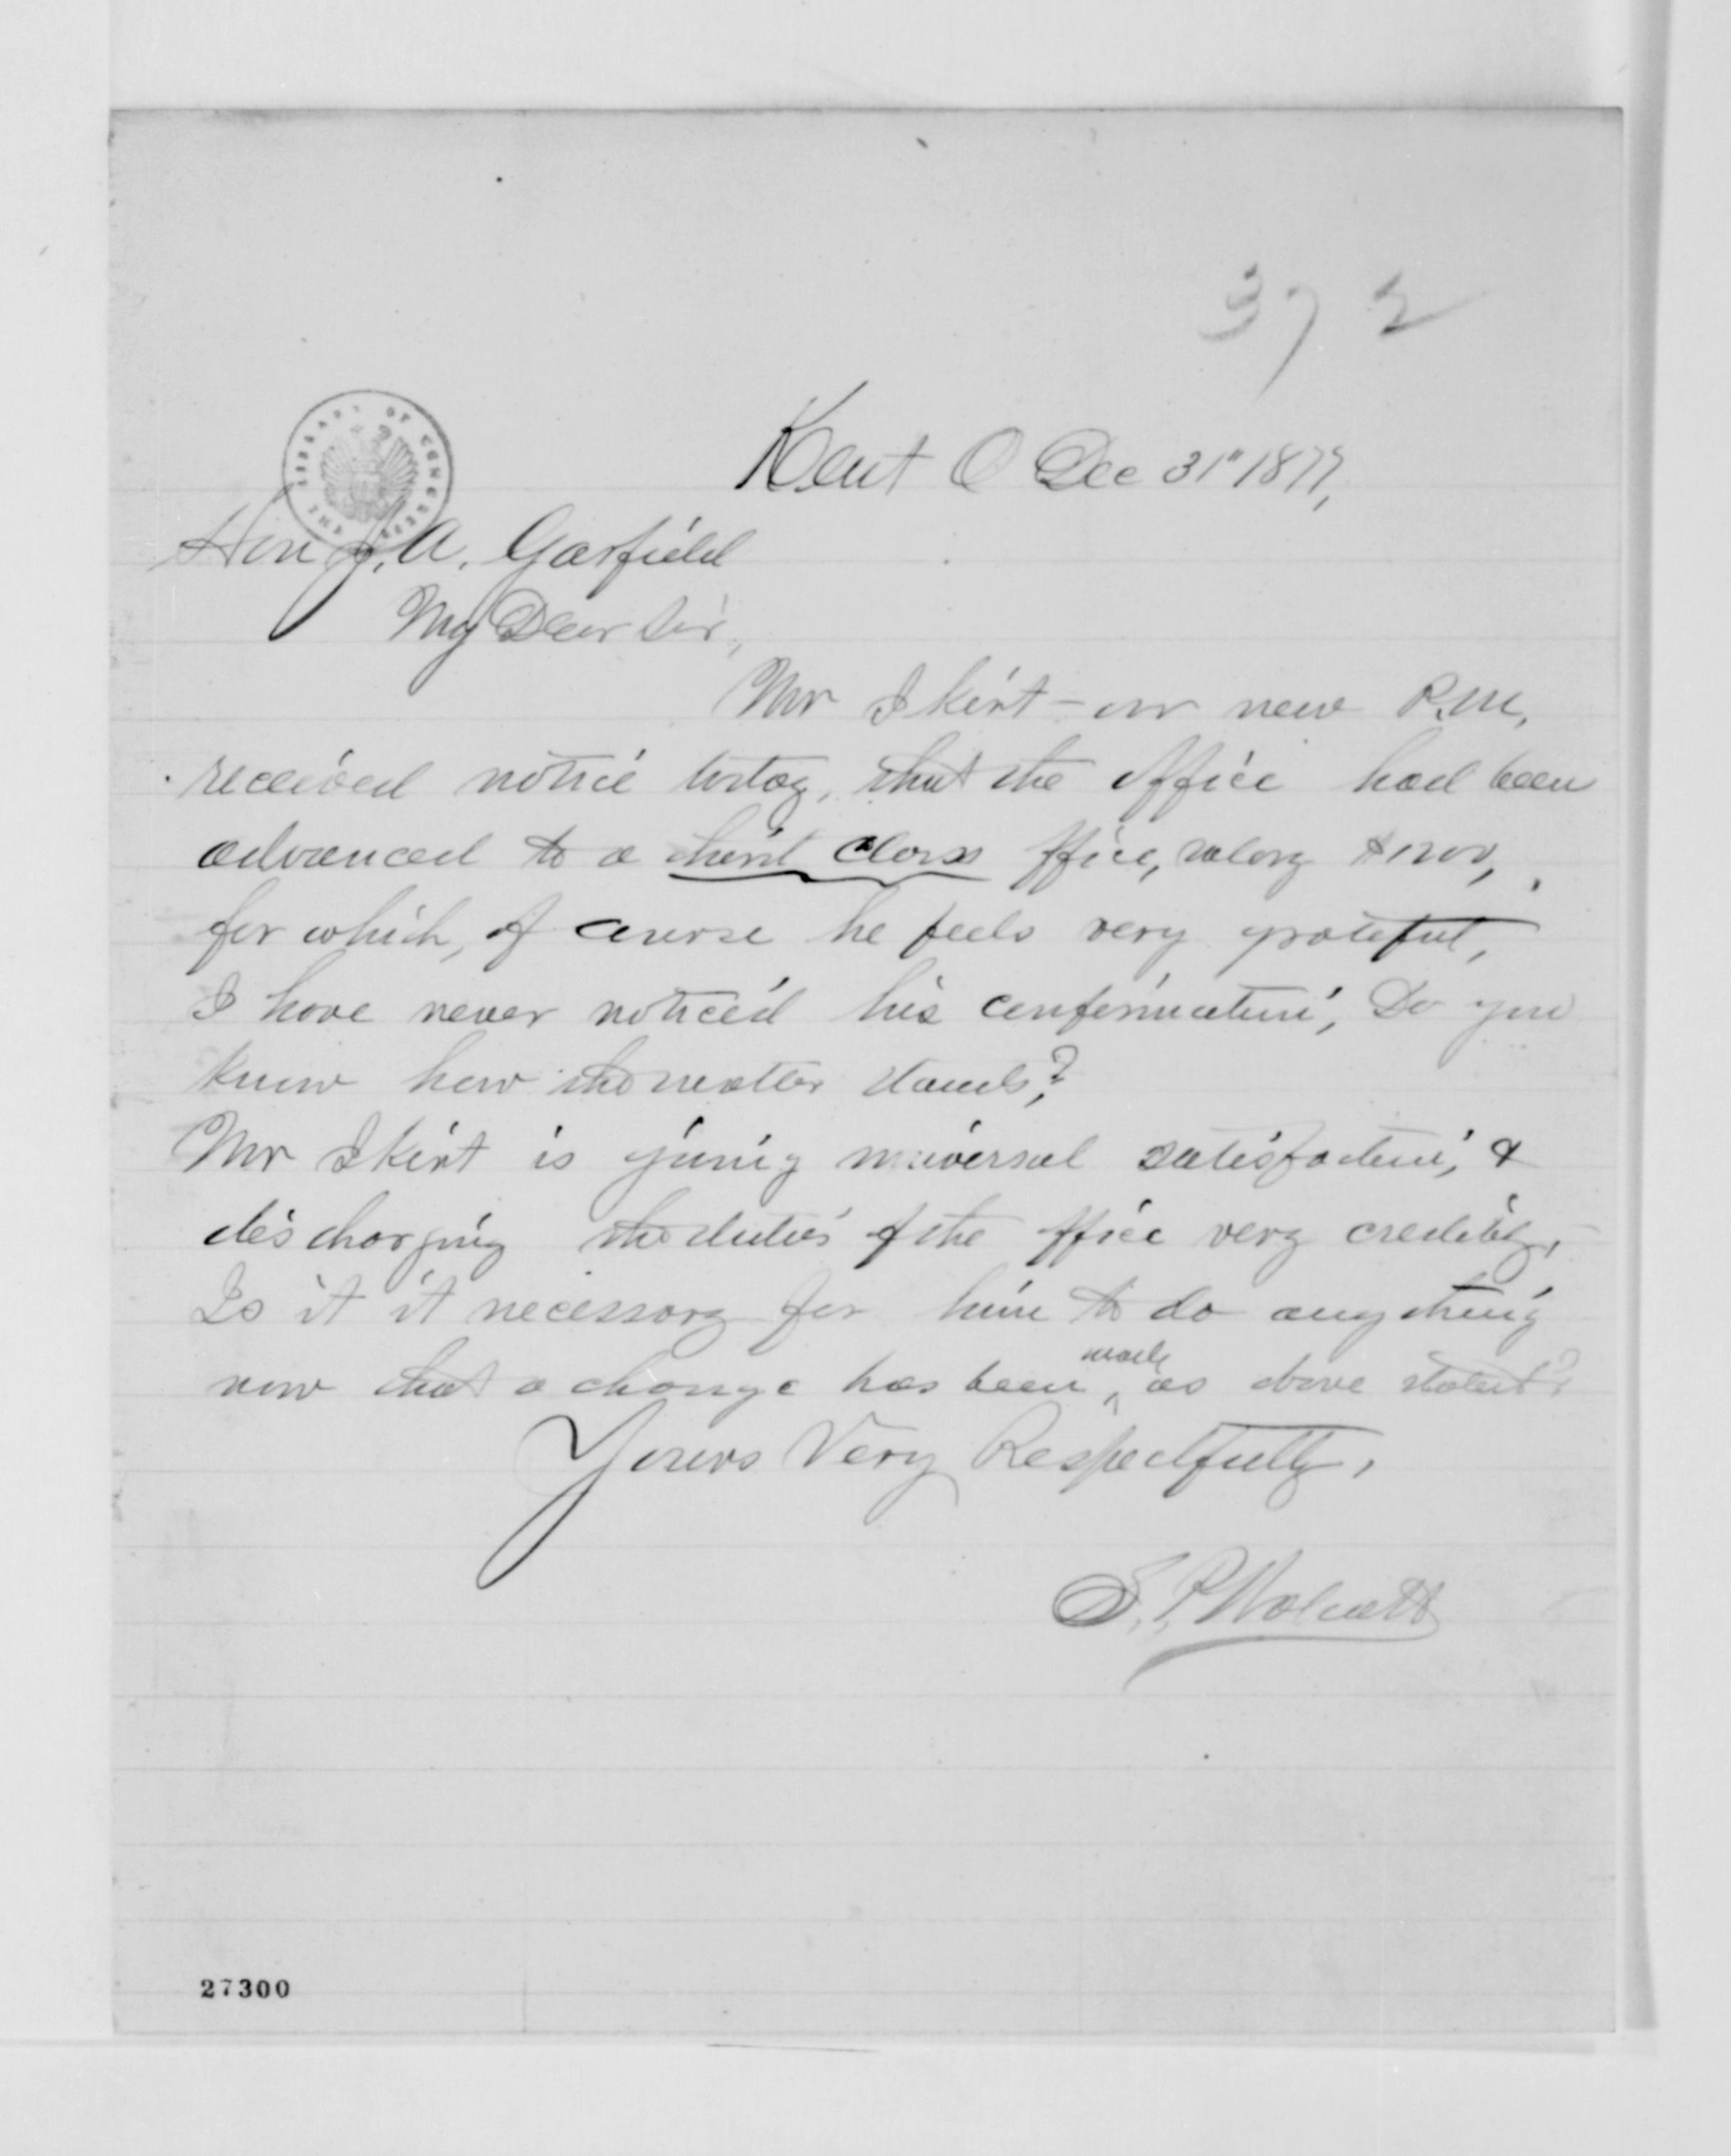 372
LIBRARY OF CONGRESS
THE
Kent O Dec 31" 1877,
Hon J. A. Garfield
My Dear Sir,
Mr Skirt - our new P.M.
received notice today, that the office had been
advanced to a third class office, salary $1200,
for which, of course he feels very grateful,
I have never noticed his confirmation, Do you
know how the matter stands?
Mr Skirt is giving universal satisfaction, &
discharging the duties of the office very credibly,
Is it it necessary for him to do anything
now that a change has been made, as above stated?
Yours Very Respectfully,
S. P. Wolcott
27300